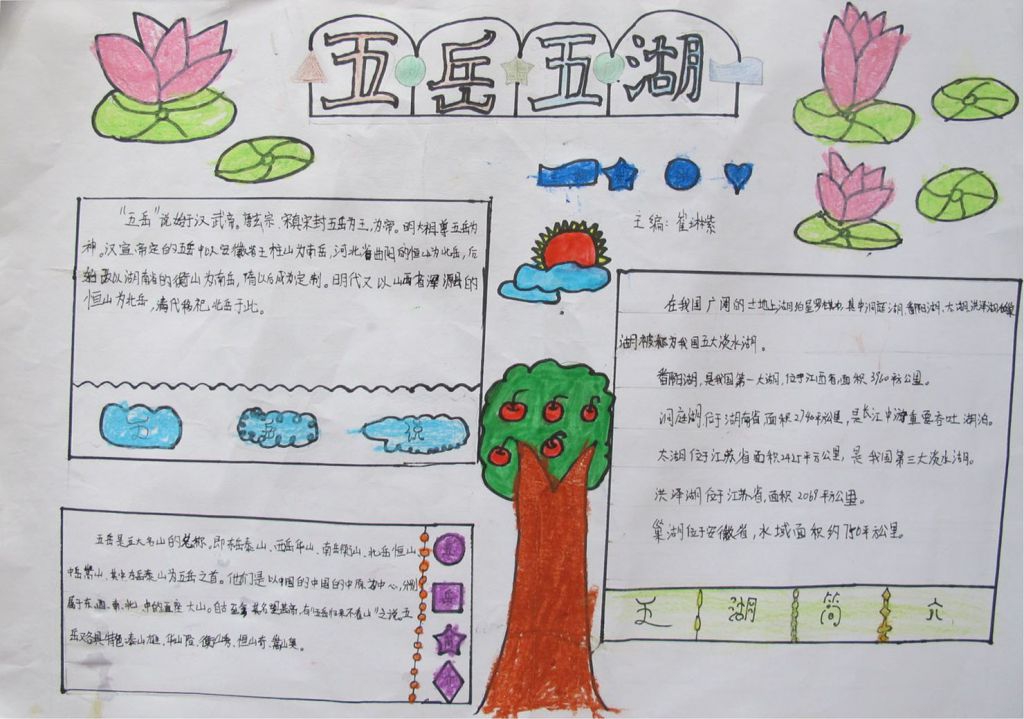 五岳五湖
主编：崔琳紫
"五岳"说始于汉武帝。唐玄宗、宋真宋封五岳为王、为帝。明太祖尊五岳为
神。汉宣帝定的五岳中以安徽省天柱山为南岳，河北省曲阳的恒山为北岳，后
改以湖南省的衡山为南岳，隋以后成为定制。明代又以山西省浑源县的
恒山为北岳，清代移祀北岳于此。
五 岳 说
五岳是五大名山的总称，即东岳泰山、西岳华山、南岳衡山、北岳恒山、
中岳嵩山，其中东岳泰山为五岳之首。他们是以中国的中国的中原为中心，分别
属于东、西、南、北、中的五座大山。
岳又各具特色：泰山雄、华山险、衡山秀、恒山奇、嵩山奥。
五
岳
在我国广阔的土地上湖泊星罗棋布，其中洞庭湖、鄱阳湖、太湖、洪泽湖和巢
湖被称为我国五大淡水湖。
鄱阳湖，是我国第一大湖，位于江西省，面积3960平方公里。
洞庭湖位于湖南省，面积2740平方公里，是长江中游重要吞吐湖泊。
太湖位于江苏省面积2425平方公里，是我国第三大淡水湖。
洪泽湖位于江苏省，面积2069平方公里。
巢湖位于安徽省，水域面积约750平方公里。
五 湖 简 介